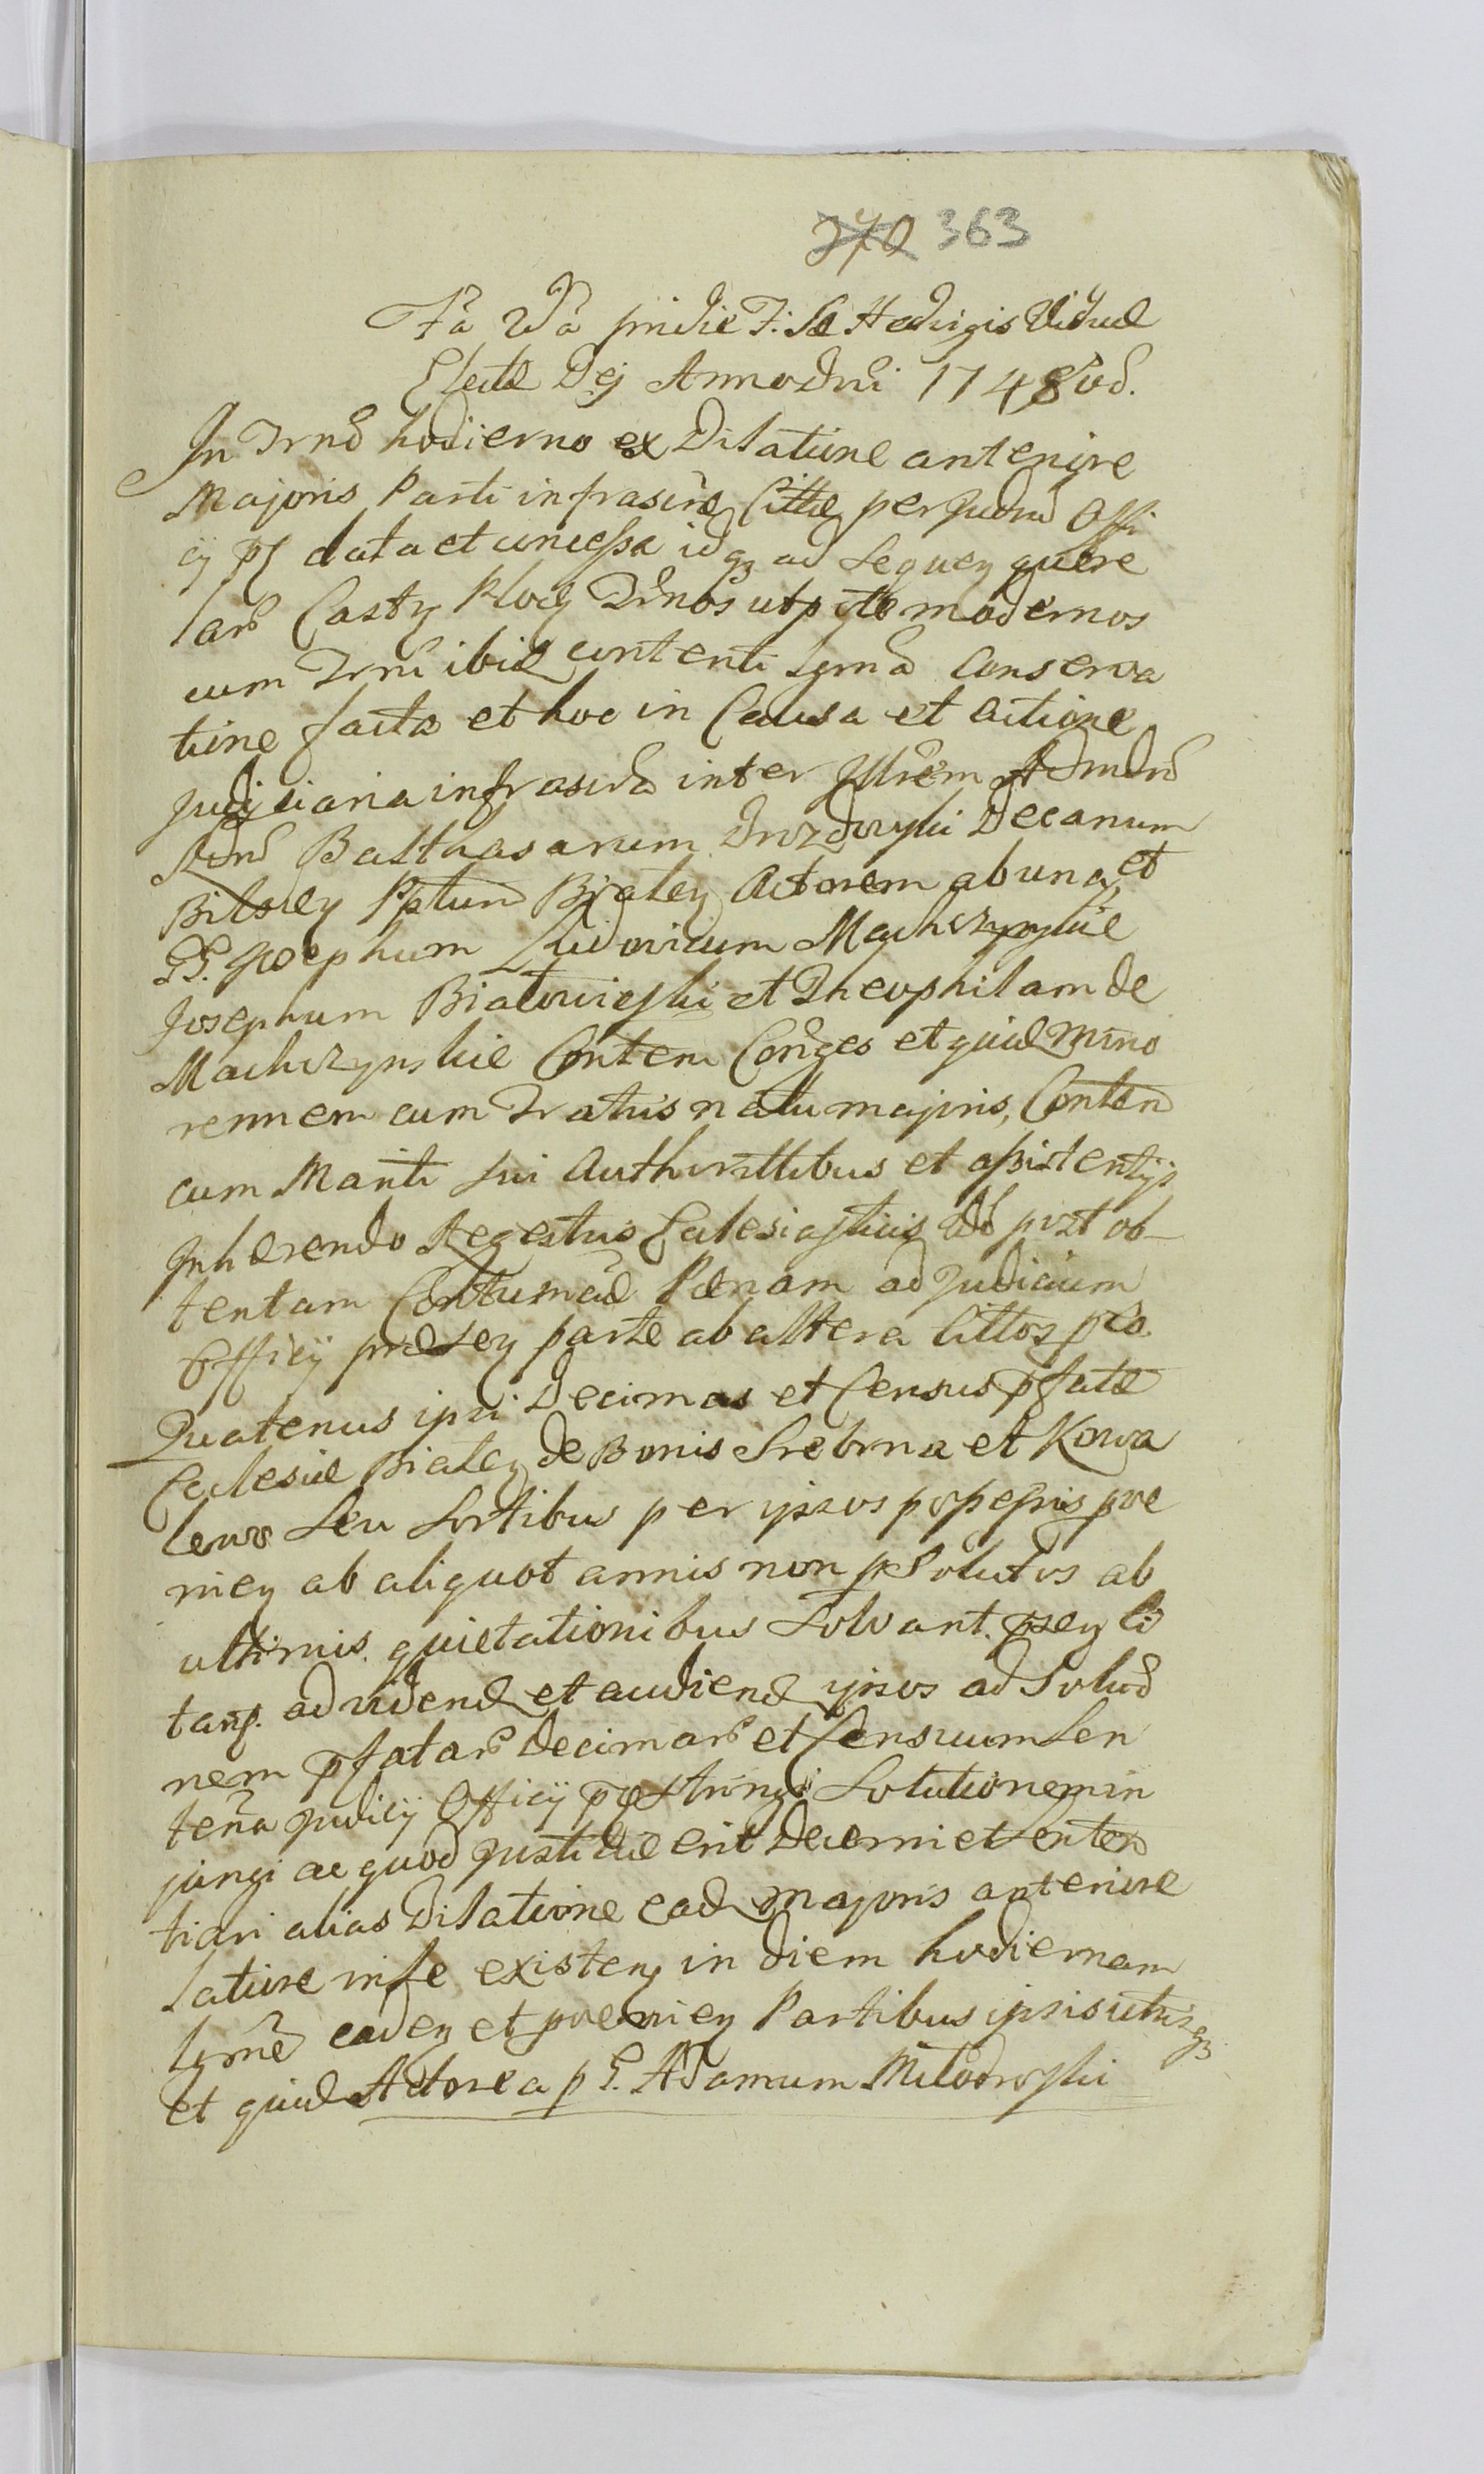 370 363
Fa 2da pridie F: Sæ Hedvigis Viduæ
Electæ Dej Anno Dni 1748vo
In Trno hodierno ex Dilatione anteriore
Majoris Parti infrascræ Cittæ per Judiu Offi
cÿ pn data et concessa idqz ad sequen quere
lar Castr Ploc Trnos ut pote modernos
cum Trni ibid contenti Conserva
tione facta et hoc in Causa et actione
Judiciaria infrascrta inter Jllrem Admdu
Rdnd Balthasarum Drozdowski Decanum
Bilscen Pptum Bialen Actorem ab una et
GG. Josephum Ludovicum Machczynskie
Josephum Bialowieski et Theophilam de
Machczynskie Conten Conges et quid mino
rennem cum Fratris natu majoris, Conten
cum Mariti sui Authorittibus et assistentijs
Inhærendo Regestris Eclesiasticis post ob-
tentam Contumaciæ Pænam ad Judicium
Officÿ præsen parte ab altera Cittos pto.
Quatenus ipsi Decimas et Census pfatæ
Eclesiæ Bialen de Bonis Srebrna et Kowa
lewo seu sortibus per ipsos possessis prove
nien ab aliquot annis non psolutos ab
ultimis quietationibus solvant. psen Ci
tanp. ad videnđ et audienđ ipsos ad Solutio
nem pfatar Decimar et Censuum Sen
tentia Judicÿ Officÿ pn stringi Solutionem in
jungi ac quod Justitiæ erit Decerni et senten
tiari alias Dilatione ead majoris anteriore
latiore in se existen in diem hodiernam
eaden et pvenien Partibus ipsis utrisqz
et quid Actore a p G. Adamum Milodroski